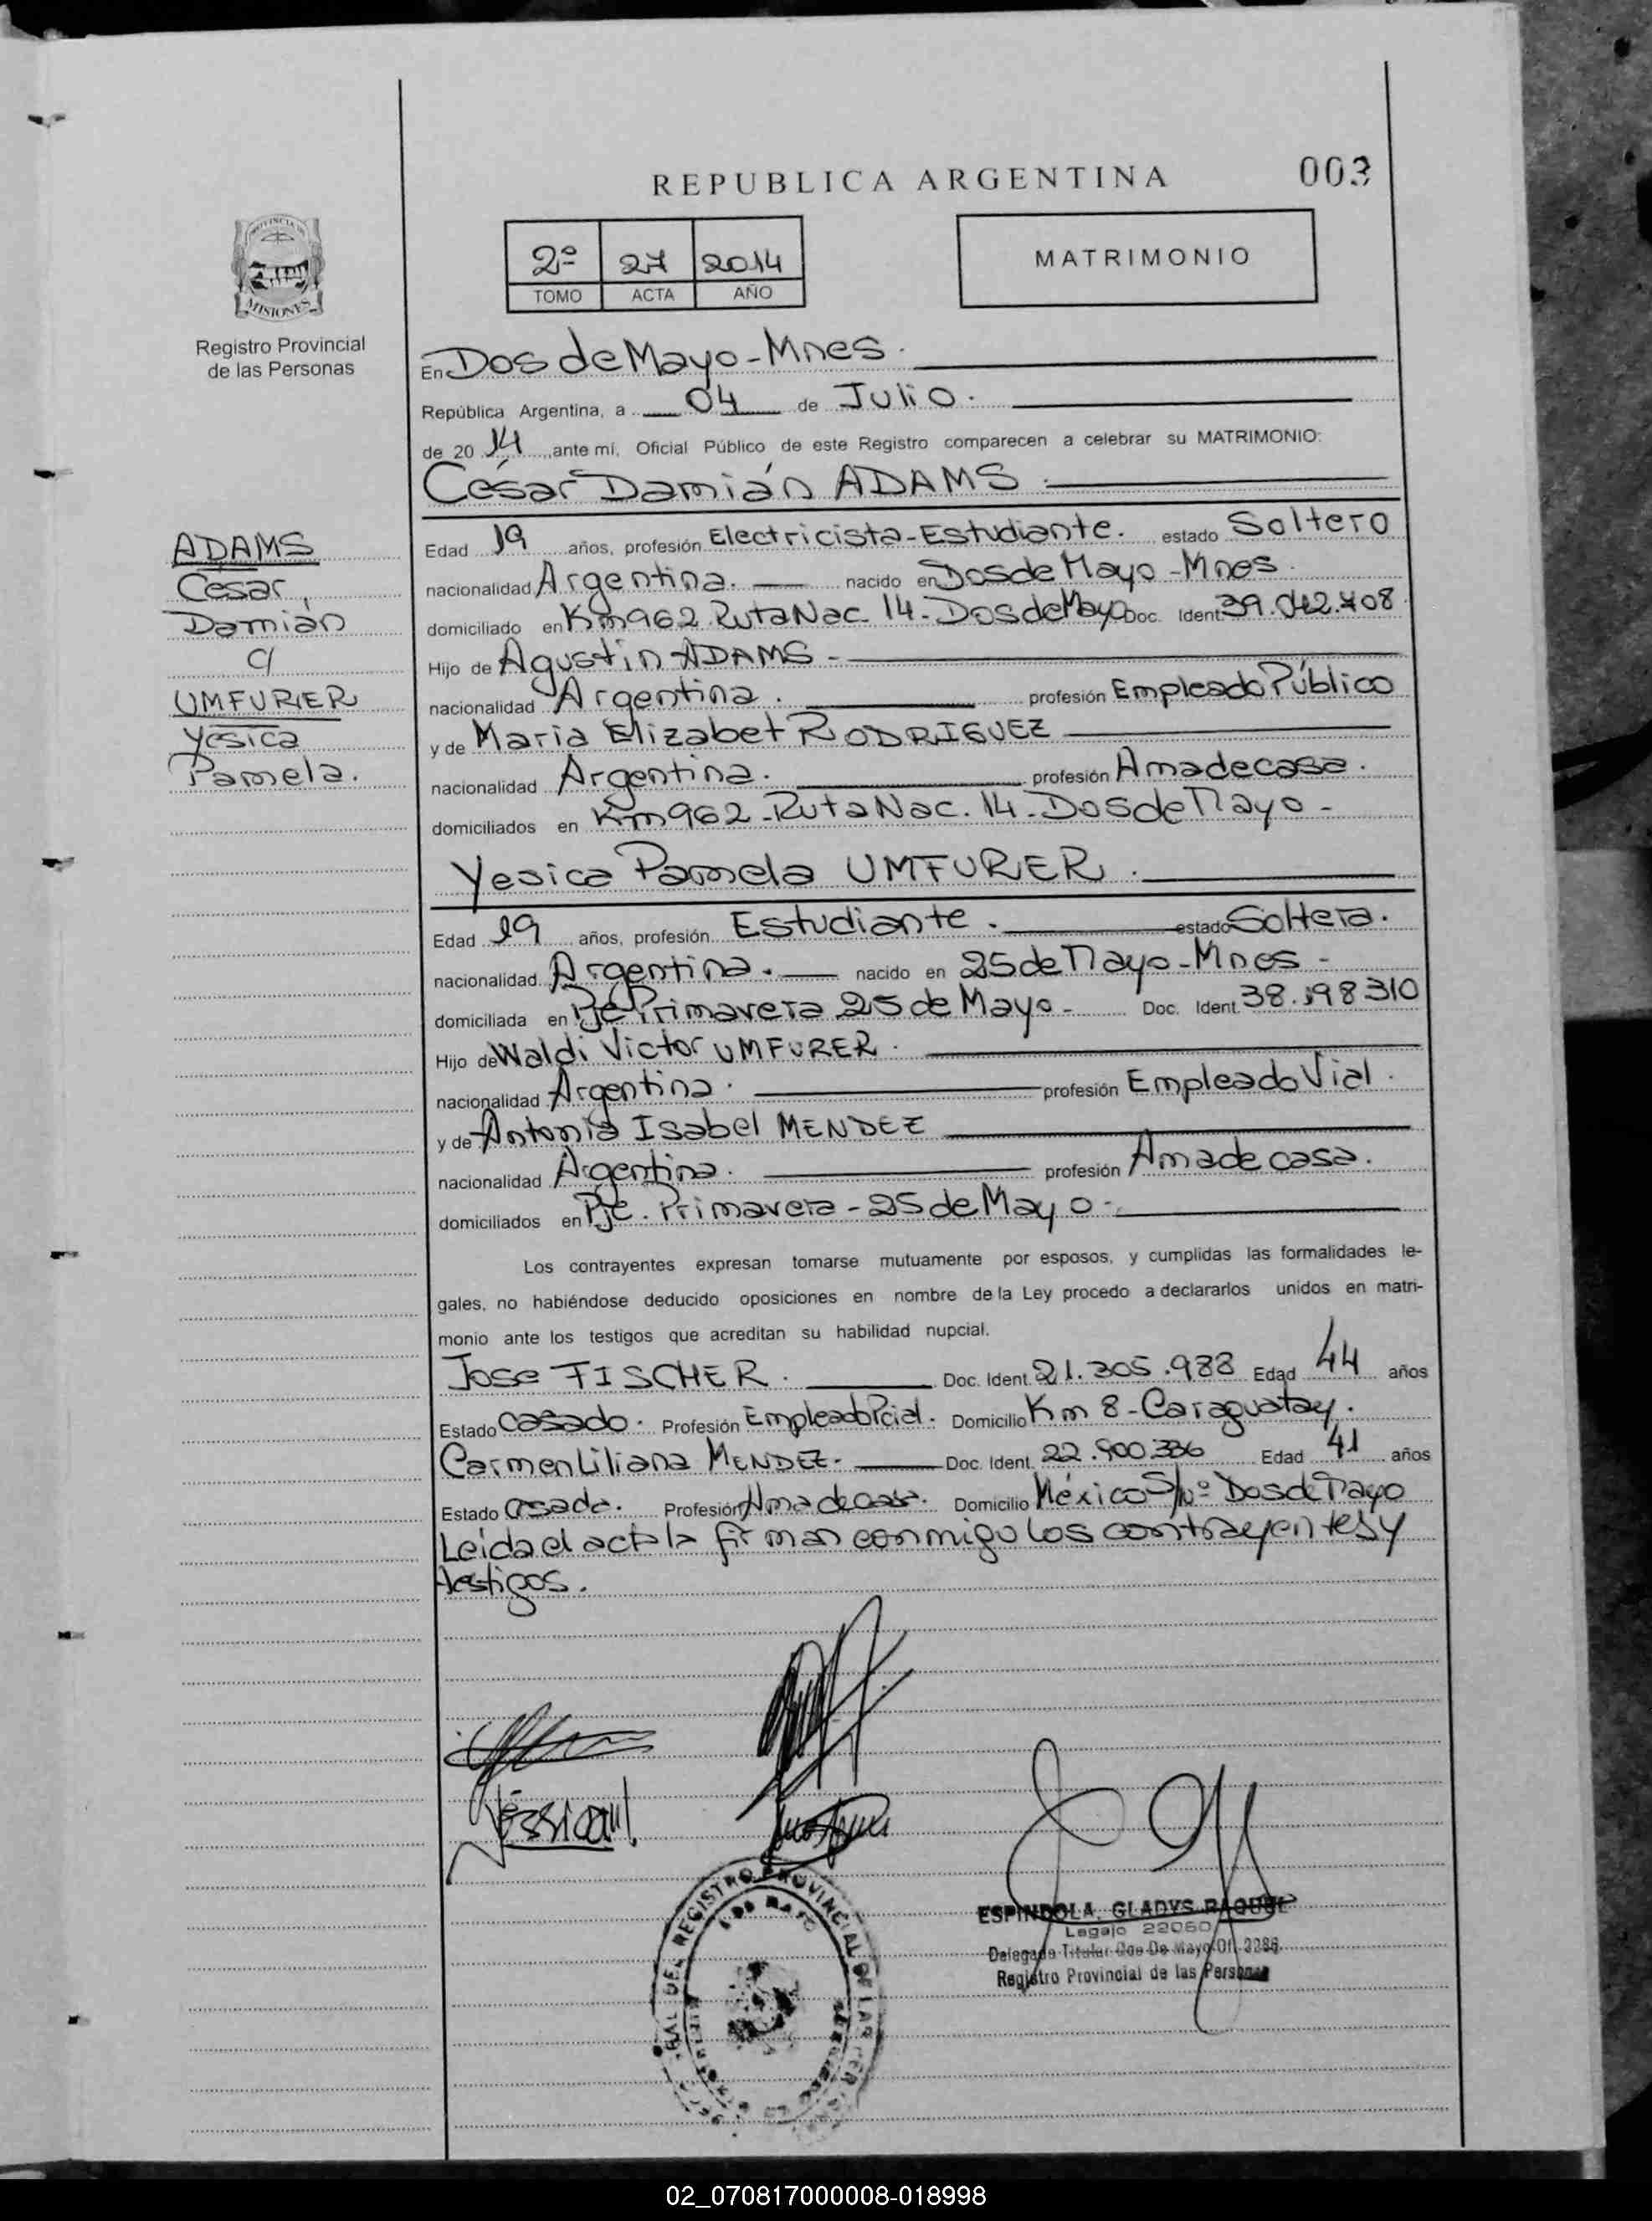 REPUBLICA ARGENTINA
003
2º 27 2014
TOMO ACTA AÑO
MATRIMONIO
PROVINCIA DE
MISIONES
Registro Provincial
de las Personas
En Dos de Mayo - Mnes.
República Argentina, a 04 de Julio.
de 20 14 ante mí, Oficial Público de este Registro comparecen a celebrar su MATRIMONIO:
César Damián ADAMS
ADAMS
César
Damián
c/
UMFURER
Yesica
Pamela.
Edad 19 años, profesión Electricista - Estudiante. estado Soltero
nacionalidad Argentina. nacido en Dos de Mayo - Mnes.
domiciliado en Km 962 Ruta Nac. 14 - Dos de Mayo Doc. Ident. 39.042.708
Hijo de Agustin ADAMS -
nacionalidad Argentina. profesión Empleado Público
y de Maria Elizabet RODRIGUEZ
nacionalidad Argentina. profesión Ama de casa.
domiciliados en Km 962 - Ruta Nac. 14 - Dos de Mayo -
Yesica Pamela UMFURER.
Edad 19 años, profesión Estudiante. estado Soltera.
nacionalidad Argentina. nacido en 25 de Mayo - Mnes -
domiciliada en Pje Primavera 25 de Mayo - Doc. Ident. 38.198310
Hijo de Waldi Victor UMFURER.
nacionalidad Argentina. profesión Empleado Vial.
y de Antonia Isabel MENDEZ
nacionalidad Argentina. profesión Ama de casa.
domiciliados en Pje. Primavera - 25 de Mayo -
Los contrayentes expresan tomarse mutuamente por esposos, y cumplidas las formalidades le-
gales, no habiéndose deducido oposiciones en nombre de la Ley procedo a declararlos unidos en matri-
monio ante los testigos que acreditan su habilidad nupcial.
Jose FISCHER. Doc. Ident. 21.305.988 Edad 44 años
Estado Casado. Profesión Empleado Pcial. Domicilio Km 8 - Caraguatay.
Carmen Liliana MENDEZ - Doc. Ident. 22.900.336 Edad 41 años
Estado Casada. Profesión Ama de casa. Domicilio México S/Nº Dos de Mayo
Leída el acta la firman conmigo los contrayentes y
testigos.
REGISTRO PROVINCIAL DE LAS
ESPINDOLA, GLADYS RAQUEL
Legajo 22060
Delegada Titular Dos De Mayo Of. 3286
Registro Provincial de las Personas
02_070817000008-018998